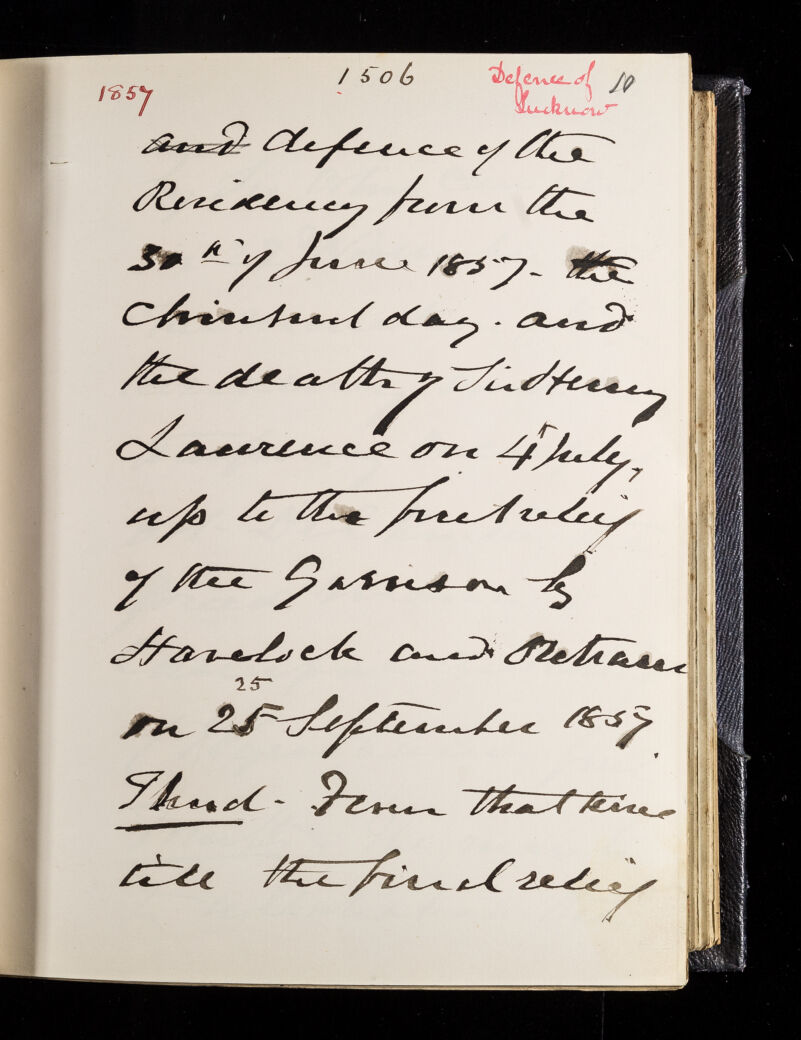 1857
1506
Defence of
Lucknow
10
and defence of the
Residency from the
30th of June 1857 - the
Chinhut day. and
the death of Sir Henry
Lawrence on 4th July,
up to the first relief
of the Garrison by
Havelock and Outram
25
on 25 September 1857
Third - From that time
till the final relief